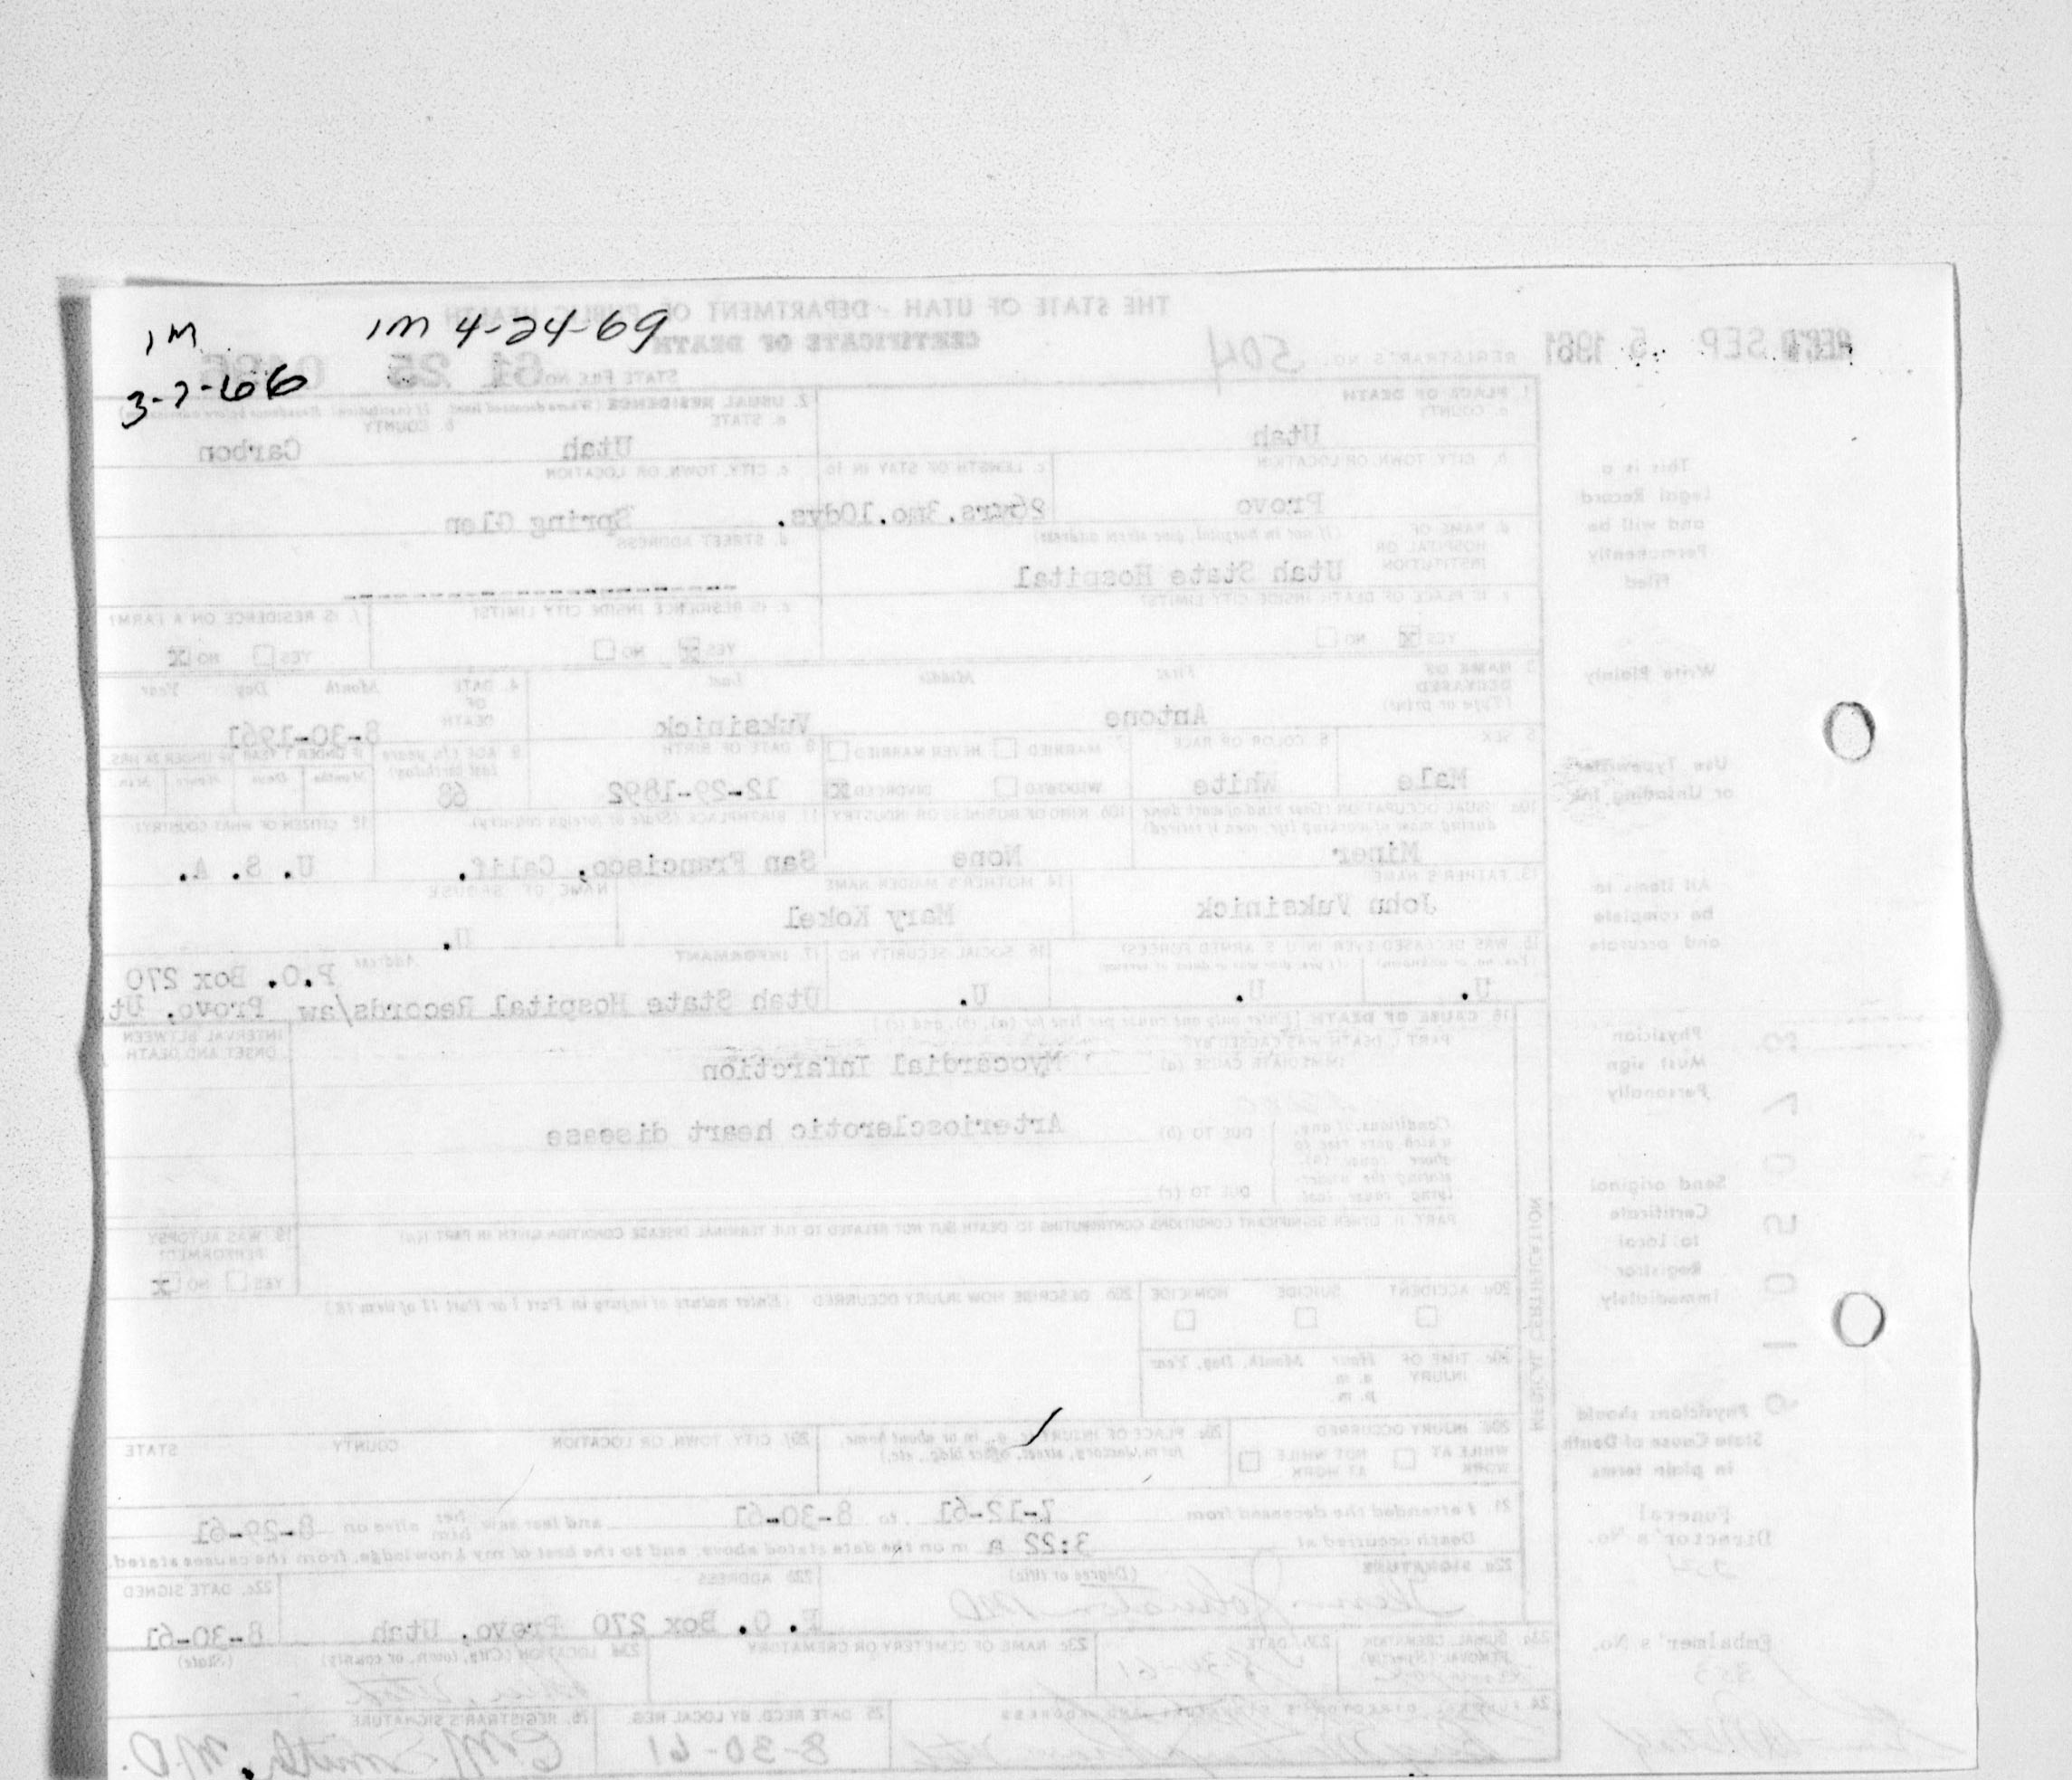 1M
1M 4-24-69
3-7-66
THE STATE OF UTAH - DEPARTMENT OF PUBLIC HEALTH
CERTIFICATE OF DEATH
REC'D SEP 5 1961
REGISTRAR'S NO. 504
STATE FILE NO. 61 25
1. PLACE OF DEATH
a. COUNTY
Utah
2. USUAL RESIDENCE (Where deceased lived. If institution: Residence before admission)
a. STATE
Utah
b. COUNTY
Carbon
b. CITY, TOWN, OR LOCATION
Provo
c. LENGTH OF STAY IN 1b
26yrs.3mo.10dys.
c. CITY, TOWN, OR LOCATION
Spring Glen
d. NAME OF HOSPITAL OR INSTITUTION (If not in hospital, give street address)
Utah State Hospital
d. STREET ADDRESS
e. IS PLACE OF DEATH INSIDE CITY LIMITS?
YES X NO
e. IS RESIDENCE INSIDE CITY LIMITS?
YES X NO
f. IS RESIDENCE ON A FARM?
YES NO X
3. NAME OF DECEASED (Type or print)
First Middle Last
Antone Vuksinick
4. DATE OF DEATH
Month Day Year
8-30-1961
5. SEX
Male
6. COLOR OR RACE
White
7. MARRIED NEVER MARRIED
WIDOWED DIVORCED X
8. DATE OF BIRTH
12-29-1892
9. AGE (In years last birthday)
68
IF UNDER 1 YEAR IF UNDER 24 HRS.
Months Days Hours Min.
10a. USUAL OCCUPATION (Give kind of work done during most of working life, even if retired)
Miner
10b. KIND OF BUSINESS OR INDUSTRY
None
11. BIRTHPLACE (State or foreign country)
San Francisco, Calif.
12. CITIZEN OF WHAT COUNTRY?
U. S. A.
13. FATHER'S NAME
John Vuksinick
14. MOTHER'S MAIDEN NAME
Mary Kokel
NAME OF SPOUSE
U.
15. WAS DECEASED EVER IN U.S. ARMED FORCES?
(Yes, no, or unknown) (If yes, give war or dates of service)
U. U.
16. SOCIAL SECURITY NO.
U.
17. INFORMANT Address
Utah State Hospital Records/aw P.O. Box 270
Provo, Ut
18. CAUSE OF DEATH [Enter only one cause per line for (a), (b), and (c).]
PART I. DEATH WAS CAUSED BY:
IMMEDIATE CAUSE (a) Myocardial Infarction
INTERVAL BETWEEN ONSET AND DEATH
Conditions, if any, which gave rise to above cause (a), stating the underlying cause last.
DUE TO (b) Arteriosclerotic heart disease
DUE TO (c)
PART II. OTHER SIGNIFICANT CONDITIONS CONTRIBUTING TO DEATH BUT NOT RELATED TO THE TERMINAL DISEASE CONDITION GIVEN IN PART I(a)
19. WAS AUTOPSY PERFORMED?
YES NO X
20a. ACCIDENT SUICIDE HOMICIDE
20b. DESCRIBE HOW INJURY OCCURRED (Enter nature of injury in Part I or Part II of item 18.)
20c. TIME OF INJURY Hour Month, Day, Year
a. m.
p. m.
20d. INJURY OCCURRED
WHILE AT WORK NOT WHILE AT WORK
20e. PLACE OF INJURY (e. g., in or about home, farm, factory, street, office bldg., etc.)
20f. CITY, TOWN, OR LOCATION COUNTY STATE
21. I attended the deceased from 7-12-61 to 8-30-61 and last saw her him alive on 8-29-61
Death occurred at 3:22 a m on the date stated above, and to the best of my knowledge, from the causes stated.
22a. SIGNATURE (Degree or title)
Johnston MD
22b. ADDRESS
P. O. Box 270 Provo, Utah
22c. DATE SIGNED
8-30-61
23a. BURIAL, CREMATION, REMOVAL (Specify)
23b. DATE
8-30-61
23c. NAME OF CEMETERY OR CREMATORY
23d. LOCATION (City, town, or county) (State)
Utah
24. FUNERAL DIRECTOR'S SIGNATURE AND ADDRESS
25. DATE RECD. BY LOCAL REG.
8-30-61
26. REGISTRAR'S SIGNATURE
C M Smith, M.D.
MEDICAL CERTIFICATION
This is a
Legal Record
and will be
Permanently
Filed
Write Plainly
Use Typewriter
or Unfading Ink
All items to
be complete
and accurate
Physician
Must sign
Personally
Send original
Certificate
to local
Registrar
immediately
Physicians should
State Cause of Death
in plain terms
Funeral
Director's No.
Embalmer's No.
353